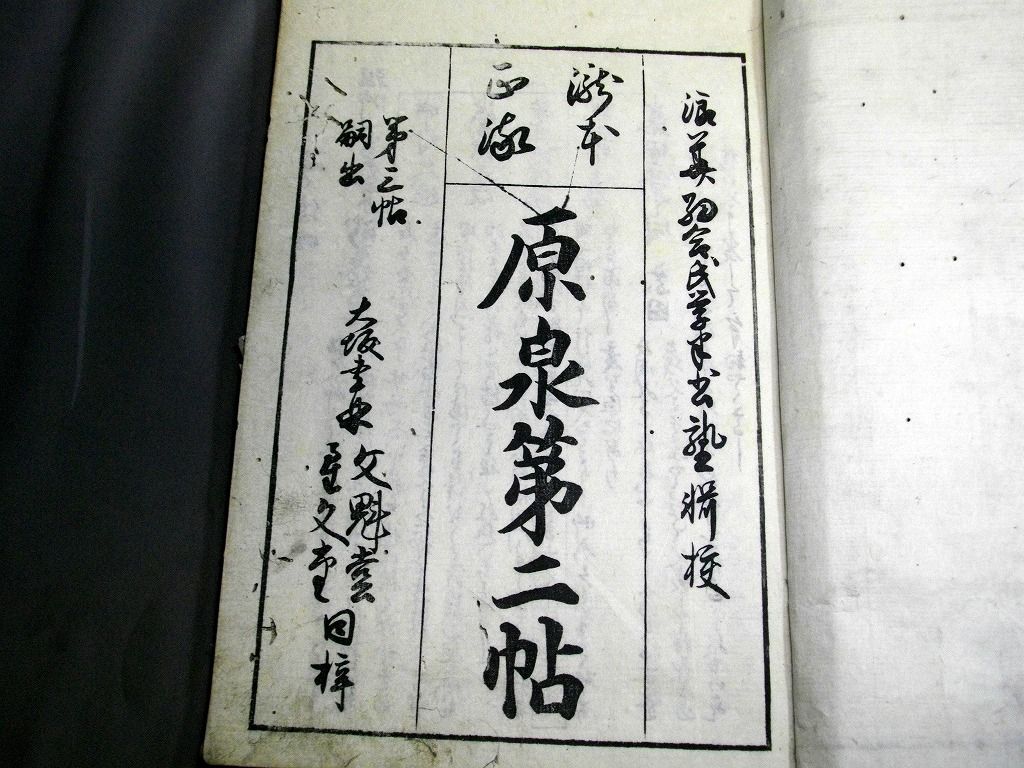 浪華 氏学半書塾輯校
瀧本
正流
原泉第二帖
第三帖
嗣出
大坂書林
文魁堂
文堂
同梓